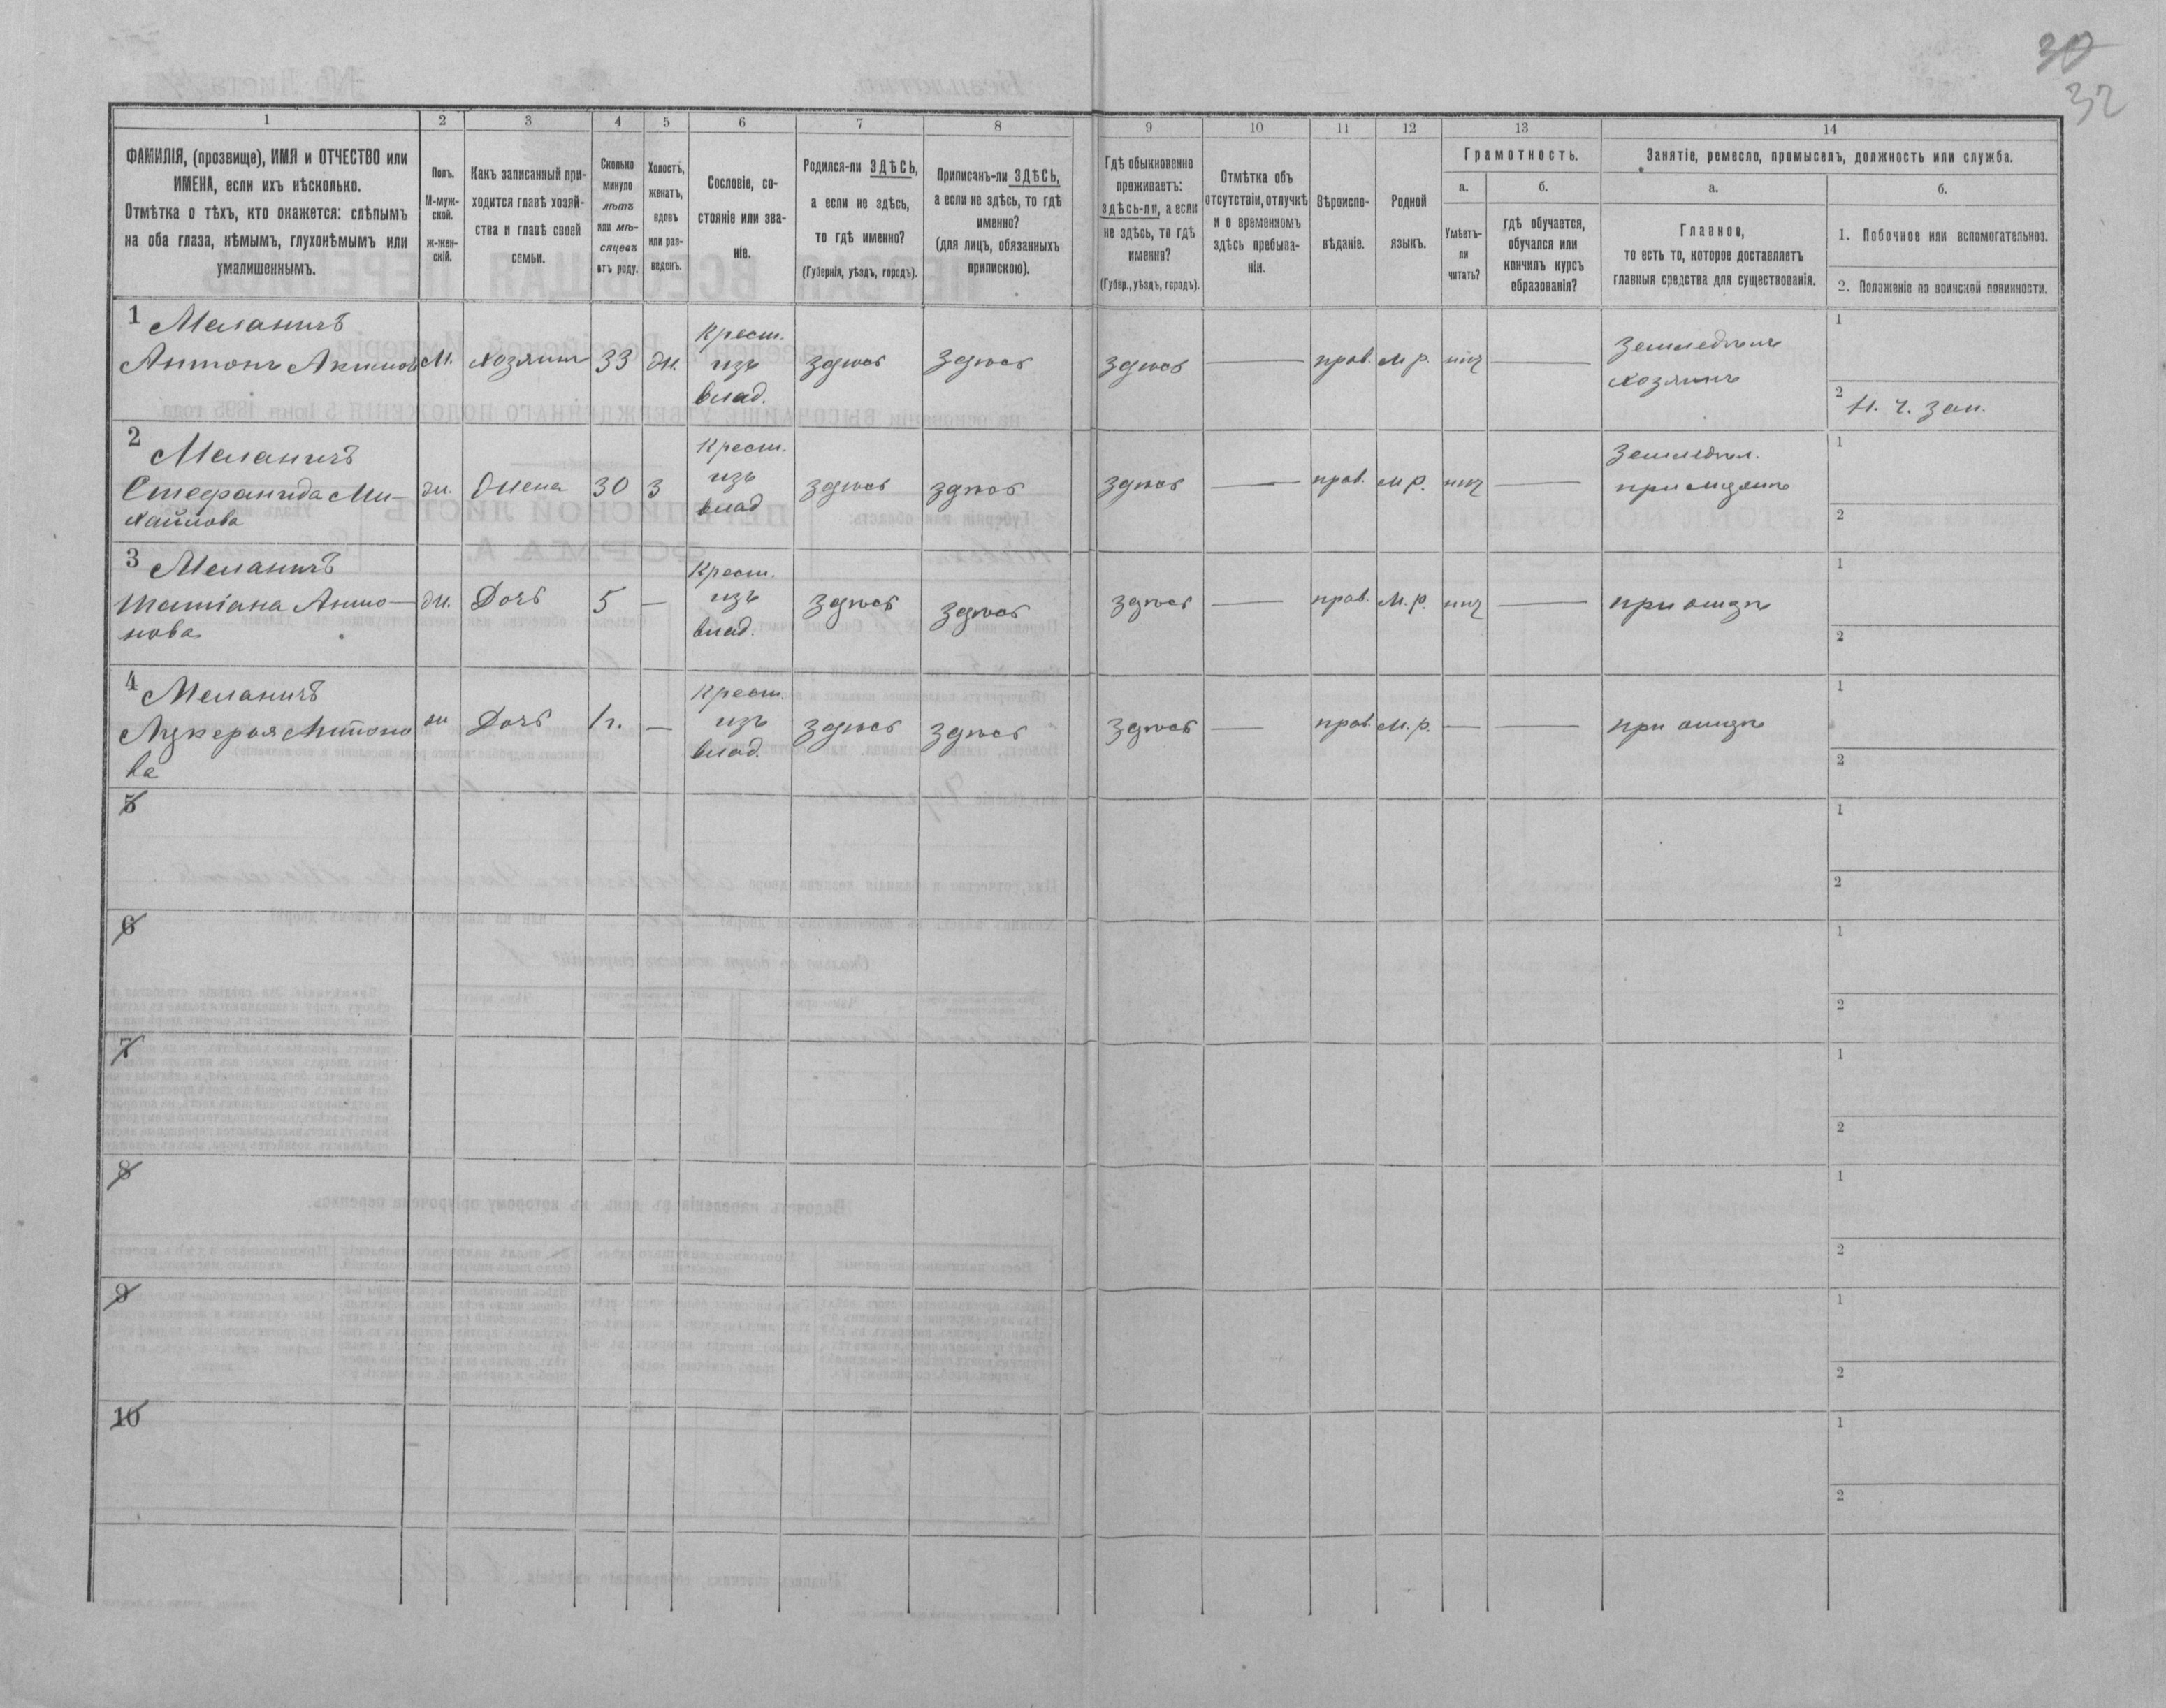 30
32
1 2 3 4 5 6 7 8 9 10 11 12 13 14
ФАМИЛІЯ, (прозвище), ИМЯ и ОТЧЕСТВО или
ИМЕНА, если ихъ нѣсколько.
Отмѣтка о тѣхъ, кто окажется: слѣпымъ
на оба глаза, нѣмымъ, глухонѣмымъ или
умалишеннымъ.
Полъ.
М-муж-
ской.
ж-жен-
скій.
Какъ записанный при-
ходится главѣ хозяй-
ства и главѣ своей
семьи.
Сколько
минуло
лѣтъ
или мѣ-
сяцевъ
отъ роду.
Холостъ,
женатъ,
вдовъ
или раз-
веденъ.
Сословіе, со-
стояніе или зва-
ніе.
Родился-ли ЗДѢСЬ,
а если не здѣсь,
то гдѣ именно?
(Губернія, уѣздъ, городъ).
Приписанъ-ли ЗДѢСЬ,
а если не здѣсь, то гдѣ
именно?
(для лицъ, обязанныхъ
припискою).
Гдѣ обыкновенно
проживаетъ:
здѣсь-ли, а если
не здѣсь, то гдѣ
именно?
(Губер., уѣздъ, городъ).
Отмѣтка объ
отсутствіи, отлучкѣ
и о временномъ
здѣсь пребыва-
ніи.
Вѣроиспо-
вѣданіе.
Родной
языкъ.
Грамотность.
а.
Умѣетъ-
ли
читать?
б.
гдѣ обучается,
обучался или
кончилъ курсъ
образованія?
Занятіе, ремесло, промыселъ, должность или служба.
а.
Главное,
то есть то, которое доставляетъ
главныя средства для существованія.
б.
1. Побочное или вспомогательное.
2. Положеніе по воинской повинности.
1 Меланичъ
Антонъ Акимов М. хозяинъ 33 ж. Крест. изъ влад. здѣсь здѣсь здѣсь — прав. м.р. нѣт — Земледѣлъ хозяинъ
1
2 Н. ч. зап.
2 Меланичъ
Стефанида Ми-
хайлова ж. Жена 30 з Крест. изъ влад здѣсь здѣсь здѣсь — прав. м.р. нѣт — Земледѣл. при мужѣ
1
2
3 Меланичъ
Татіана Анто-
нова ж. Дочь 5 — Крест. изъ влад. здѣсь здѣсь здѣсь — прав. м.р. нѣт — при отцѣ
1
2
4 Меланичъ
Лукерья Антоно
ва ж Дочь 1г. — Крест. изъ влад. здѣсь здѣсь здѣсь — прав. м.р. — — при отцѣ
1
2
5
1
2
6
1
2
7
1
2
8
1
2
9
1
2
10
1
2